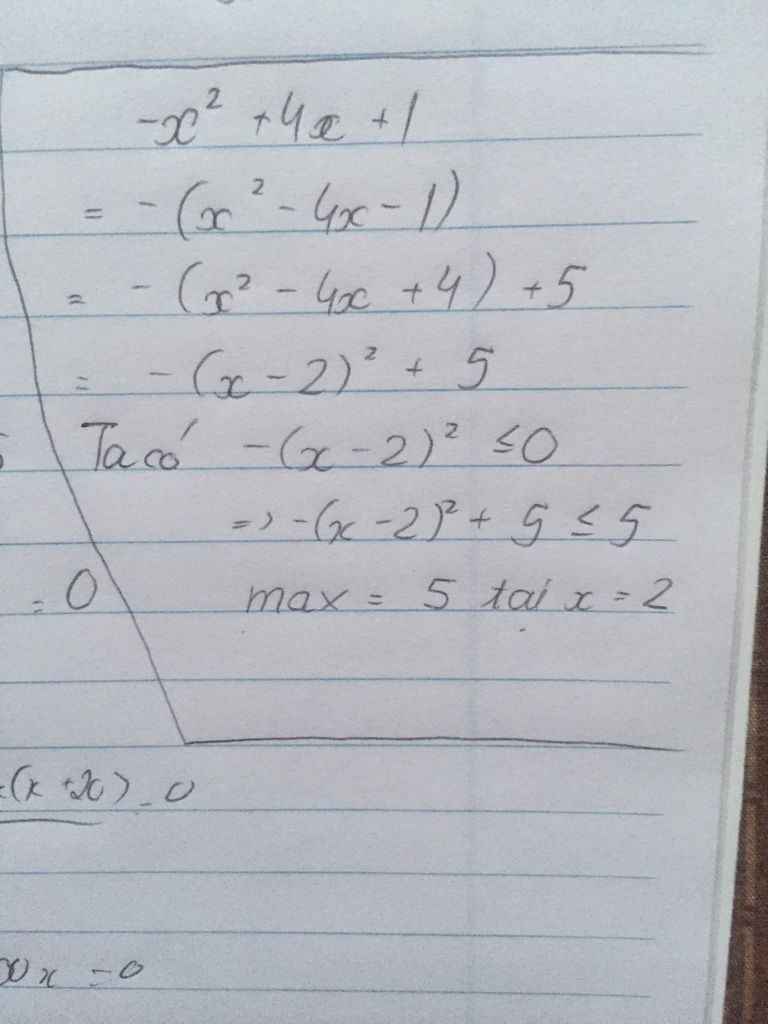 -x² + 4x + 1
= -(x² - 4x - 1)
= -(x² - 4x + 4) + 5
= -(x - 2)² + 5
Ta có -(x - 2)² ≤ 0
=> -(x - 2)² + 5 ≤ 5
= 0
max = 5 tại x = 2
(x + 20) = 0
00x = 0